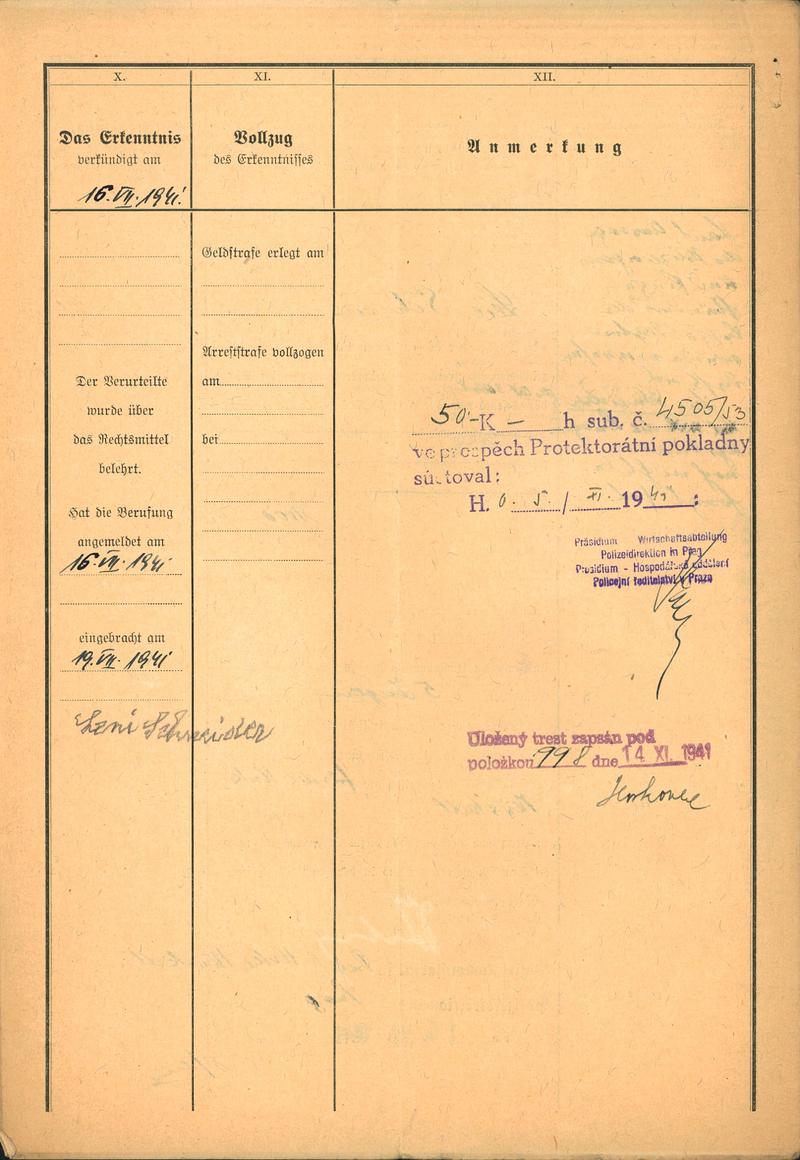 X.
Das Erkenntnis
verkündigt am
16. VII. 1941.
Der Verurteilte
wurde über
das Rechtsmittel
belehrt.
Hat die Berufung
angemeldet am
16. VII. 1941
eingebracht am
19. VII. 1941
Leni Schneider
XI.
Vollzug
des Erkenntnisses
Geldstrafe erlegt am
Arreststrafe vollzogen
am
bei
XII.
Anmerkung
50 K — h sub. č. 4505/53
ve prospěch Protektorátní pokladny
súčtoval:
H. O. 5. / XI. 1941 :
Präsidium Wirtschaftsabteilung
Polizeidirektion in Prag
Presidium - Hospodářské oddělení
Policejní ředitelství v Praze
Uložený trest zapsán pod
položkou 998 dne 14 XI. 1941